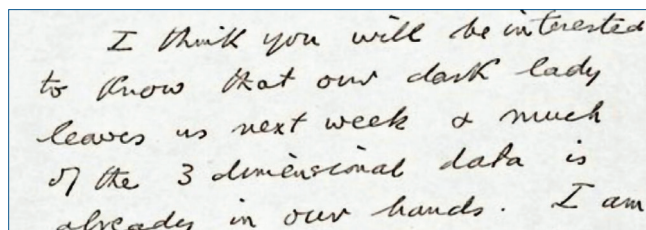 I think you will be interested
to know that our dark lady
leaves us next week & much
of the 3 dimensional data is
already in our hands. I am